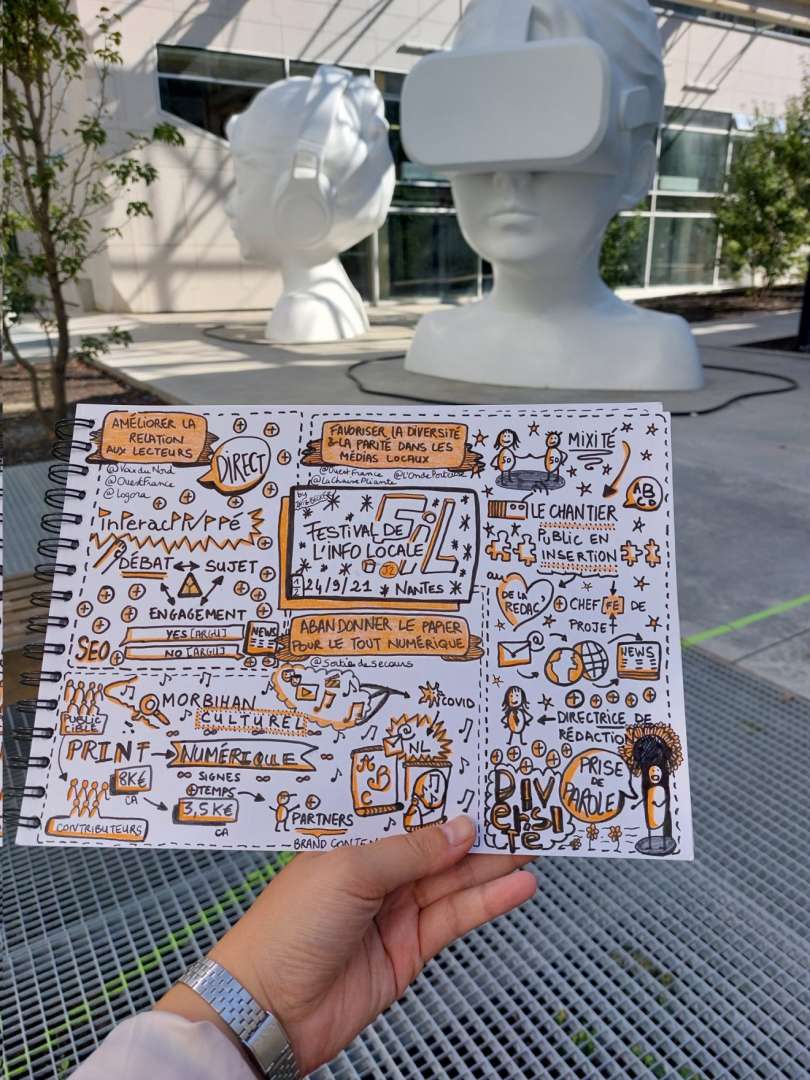 AMÉLIORER LA
RELATION
AUX LECTEURS
@VoixduNord
@OuestFrance
@logora
DIRECT
InteracPR/PPé
DÉBAT ↔ SUJET
ENGAGEMENT
SEO
YES [ARGU]
NO [ARGU]
NEWS
FAVORISER LA DIVERSITÉ
& LA PARITÉ DANS LES
MÉDIAS LOCAUX
@OuestFrance
@LaChaisePliante
by
FESTIVAL DE
L'INFO LOCALE
FIL
J2
1/2
24/9/21
NANTES
ABANDONNER LE PAPIER
POUR LE TOUT NUMÉRIQUE
@Sortiedesecours
PUBLIC
CIBLE
MORBIHAN
CULTUREL
COVID
PRINT → NUMÉRIQUE
∞ SIGNES ∞
+TEMPS
8K€
CA
3,5K€
CA
CONTRIBUTEURS
PARTNERS
BRAND CONTEN
ABC
NL
50
50
MIXITÉ
ABCD
LE CHANTIER
PUBLIC EN
INSERTION
au
DE LA
RÉDAC
+ CHEF[FE] DE
PROJET
NEWS
← DIRECTRICE DE
RÉDACTION
DIVERSITÉ
PRISE
DE
PAROLE